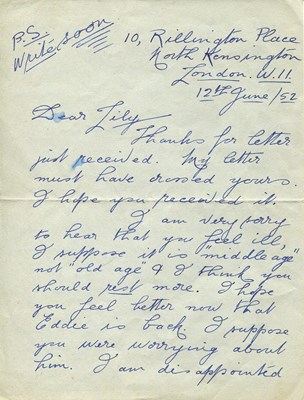 P.S.
Write soon
10, Rillington Place
North Kensington
London. W.11.
12th June/52
Dear Lily
Thanks for letter
just received. My letter
must have crossed yours.
I hope you received it.
I am very sorry
to hear that you feel ill,
I suppose it is "middle age"
not "old age" & I think you
should rest more. I hope
you feel better now that
Eddie is back. I suppose
you were worrying about
him. I am disappointed